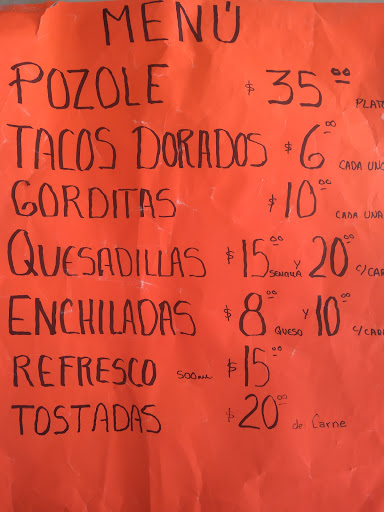 MENÚ
POZOLE $35.00 PLATO
TACOS DORADOS $6.00 CADA UNO
GORDITAS $10.00 CADA UNA
QUESADILLAS $15.00 SENCILLA Y 20.00 C/CAR
ENCHILADAS $8.00 QUESO Y 10.00
REFRESCO 500ml $15.00
TOSTADAS $20.00 de Carne